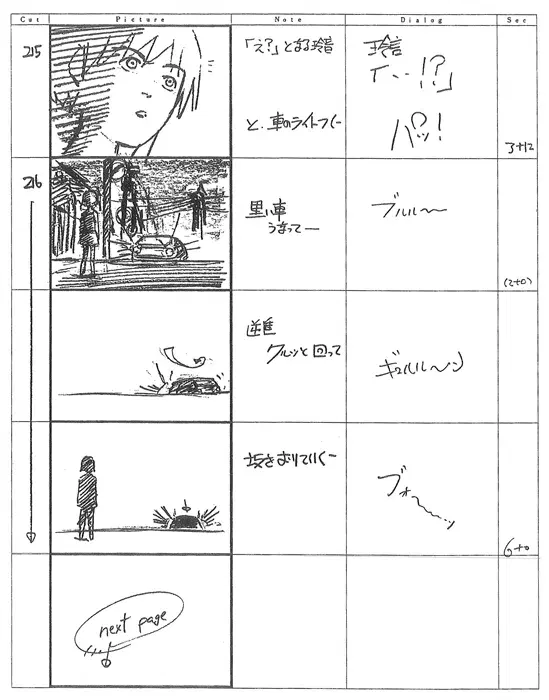 Cut Picture Note Dialog Sec
215
「え?」となる玲音
玲音
「…!?」
と、車のライトつくー
パッ!
3+12
216
黒い車
うなってー
ブルル〜
(2+0)
クルッと回って
ギュルル〜ン
坂をおりていくー
ブォ〜
6+0
next page